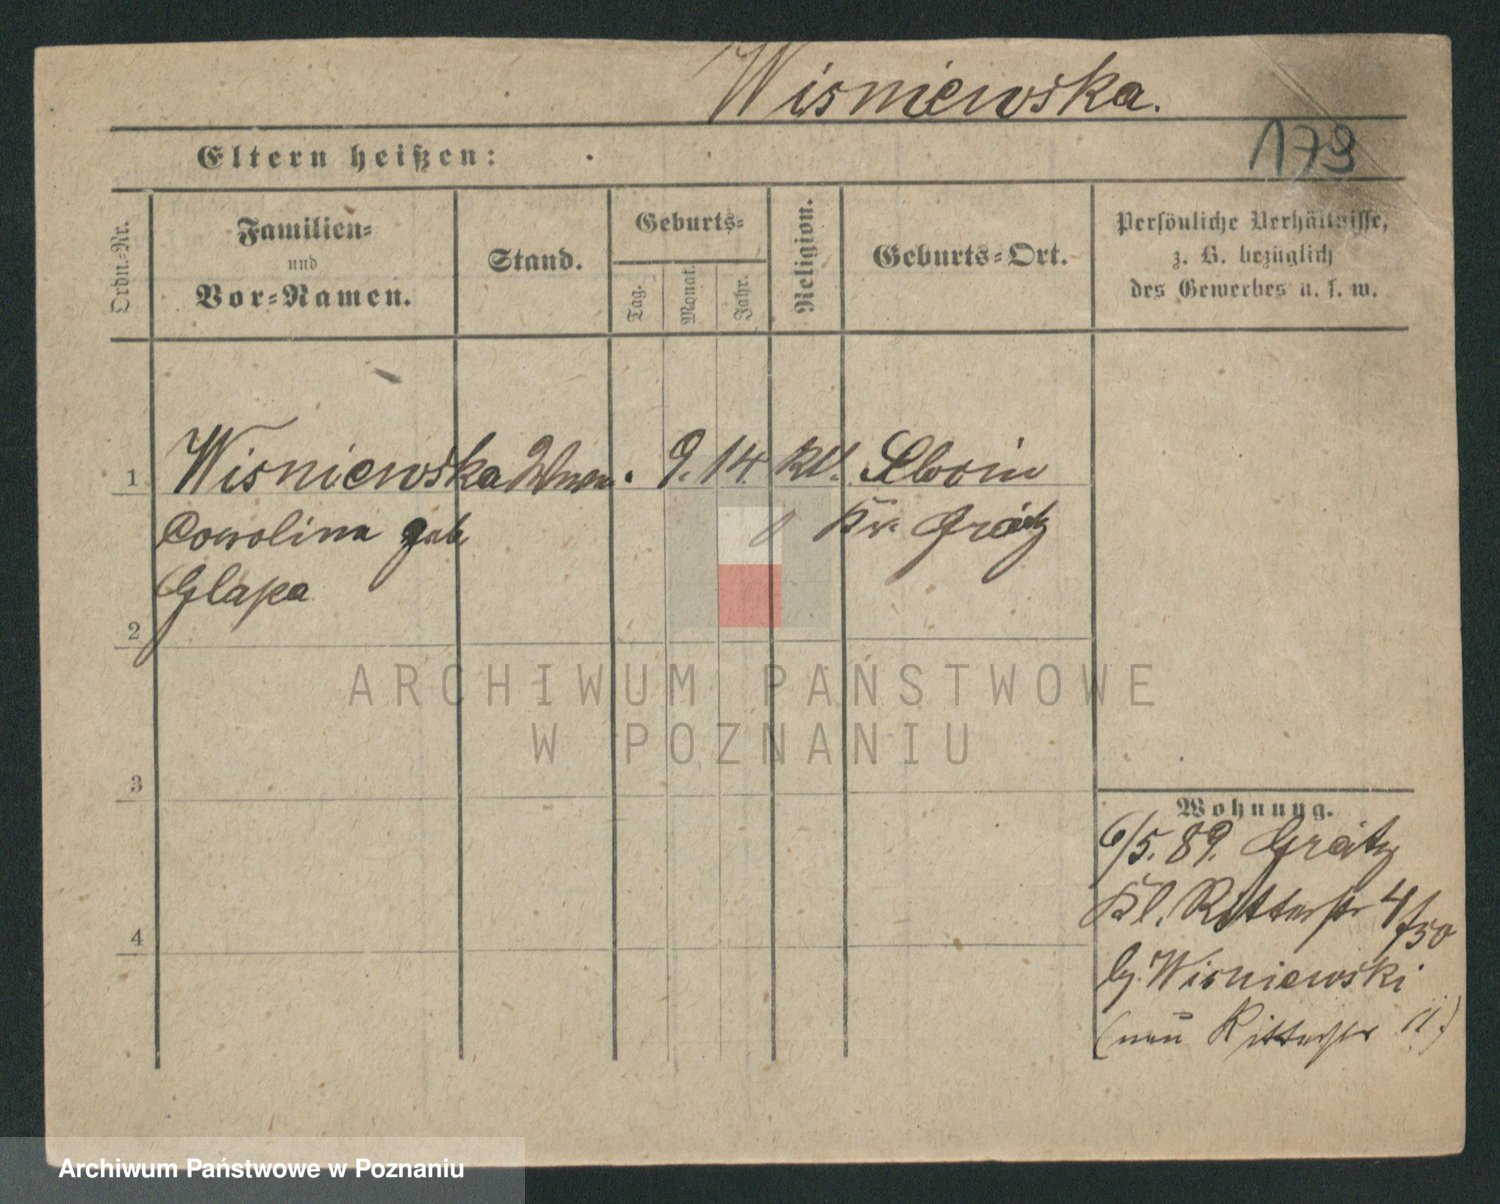 Wisniewska.
179
Eltern heißen:
Ordn.-Nr.
Familien-
und
Vor-Namen.
Stand.
Geburts-
Tag.
Monat.
Jahr.
Religion.
Geburts-Ort.
Persönliche Verhältnisse,
z. B. bezüglich
des Gewerbes u. s. w.
1 Wisniewska 9. 14.
Kr. Grätz
Carolina geb
Glapa
2
3
4
ARCHIWUM PAŃSTWOWE
W POZNANIU
Wohnung.
6/5. 89. Grätz
Kl. Ritterstr 4/
b/. Wisniewski
(neu Ritterstr 11.)
Archiwum Państwowe w Poznaniu